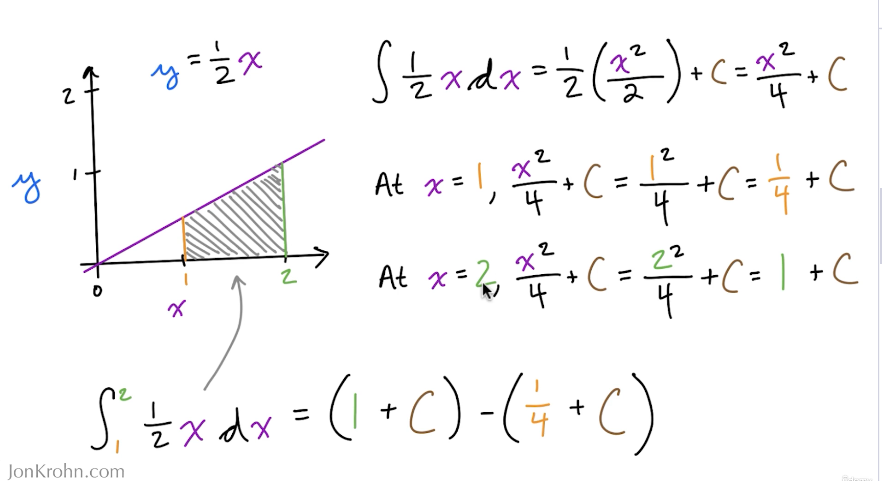 y = 1/2 x
2
1
y
0
1
2
x
∫ 1/2 x dx = 1/2 (x²/2) + C = x²/4 + C
At x = 1, x²/4 + C = 1²/4 + C = 1/4 + C
At x = 2, x²/4 + C = 2²/4 + C = 1 + C
∫₁² 1/2 x dx = (1 + C) - (1/4 + C)
JonKrohn.com